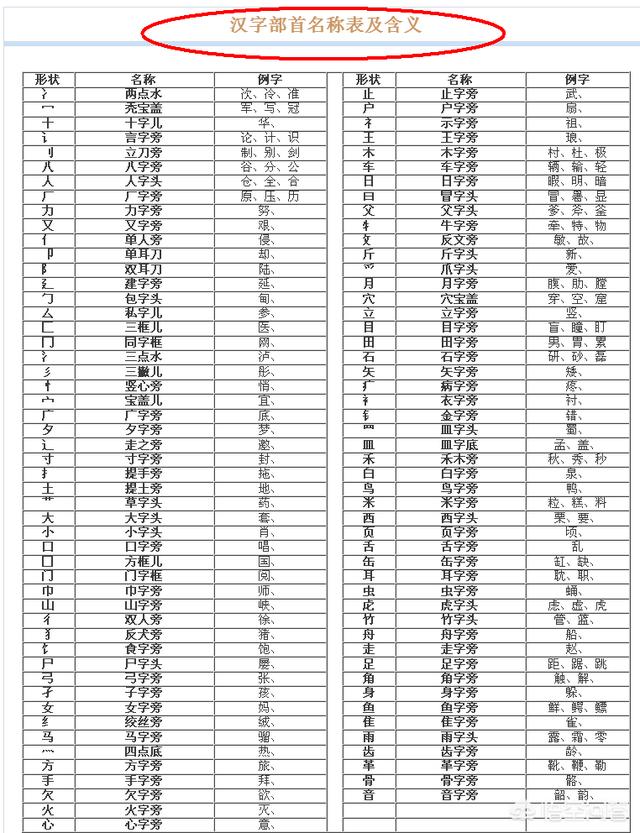 汉字部首名称表及含义
形状 名称 例字 形状 名称 例字
冫 两点水 次、冷、准 止 止字旁 武、
冖 秃宝盖 军、写、冠 户 户字旁 扇、
十 十字儿 华、 礻 示字旁 祖、
讠 言字旁 论、计、识 王 王字旁 琅、
刂 立刀旁 制、别、剑 木 木字旁 村、杜、极
八 八字旁 谷、分、公 车 车字旁 辆、输、轻
人 人字头 仓、全、合 日 日字旁 暇、明、暗
厂 厂字旁 原、压、历 曰 冒字头 冒、暑、显
力 力字旁 努、 父 父字头 爹、斧、釜
又 又字旁 艰、 牜 牛字旁 牵、特、物
亻 单人旁 侵、 攵 反文旁 敏、故、
卩 单耳刀 却、 斤 斤字头 新、
阝 双耳刀 陆、 爫 爪字头 爱、
廴 建字旁 延、 月 月字旁 腹、肋、膛
勹 包字头 甸、 穴 穴宝盖 穿、空、窟
厶 私字儿 参、 立 立字旁 竖、
匚 三框儿 医、 目 目字旁 盲、瞳、盯
冂 同字框 网、 田 田字旁 男、胃、累
氵 三点水 泸、 石 石字旁 研、砂、磊
彡 三撇儿 彤、 矢 矢字旁 矮、
忄 竖心旁 悄、 疒 病字旁 疼、
宀 宝盖儿 宜、 衤 衣字旁 衬、
广 广字旁 底、 钅 金字旁 错、
夕 夕字旁 梦、 罒 皿字头 蜀、
辶 走之旁 邀、 皿 皿字底 孟、盖、
寸 寸字旁 封、 禾 禾木旁 秋、秀、秒
扌 提手旁 拖、 白 白字旁 泉、
土 提土旁 地、 鸟 鸟字旁 鸭、
艹 草字头 药、 米 米字旁 粒、糕、料
大 大字头 套、 西 西字头 栗、要、
小 小字头 肖、 页 页字旁 顷、
口 口字旁 唱、 舌 舌字旁 乱
囗 方框儿 国、 缶 缶字旁 缸、缺、
门 门字框 阅、 耳 耳字旁 耽、职、
巾 巾字旁 师、 虫 虫字旁 蛹、
山 山字旁 峡、 虍 虎字头 虑、虚、虎
彳 双人旁 徐、 竹 竹字头 管、篮、
犭 反犬旁 猪、 舟 舟字旁 船、
饣 食字旁 饱、 走 走字旁 赵、
尸 尸字头 屡、 足 足字旁 距、踞、跳
弓 弓字旁 张、 角 角字旁 触、解、
子 子字旁 孩、 身 身字旁 躲、
女 女字旁 妈、 鱼 鱼字旁 鲜、鳄、鳔
纟 绞丝旁 绒、 隹 隹字旁 雀、
马 马字旁 骝、 雨 雨字头 露、霜、零
灬 四点底 热、 齿 齿字旁 龄、
方 方字旁 旅、 革 革字旁 靴、鞭、勒
手 手字旁 拜、 骨 骨字旁 骼、
欠 欠字旁 欲、 音 音字旁 韶、韵、
火 火字旁 灭、
心 心字旁 意、
悟空问答